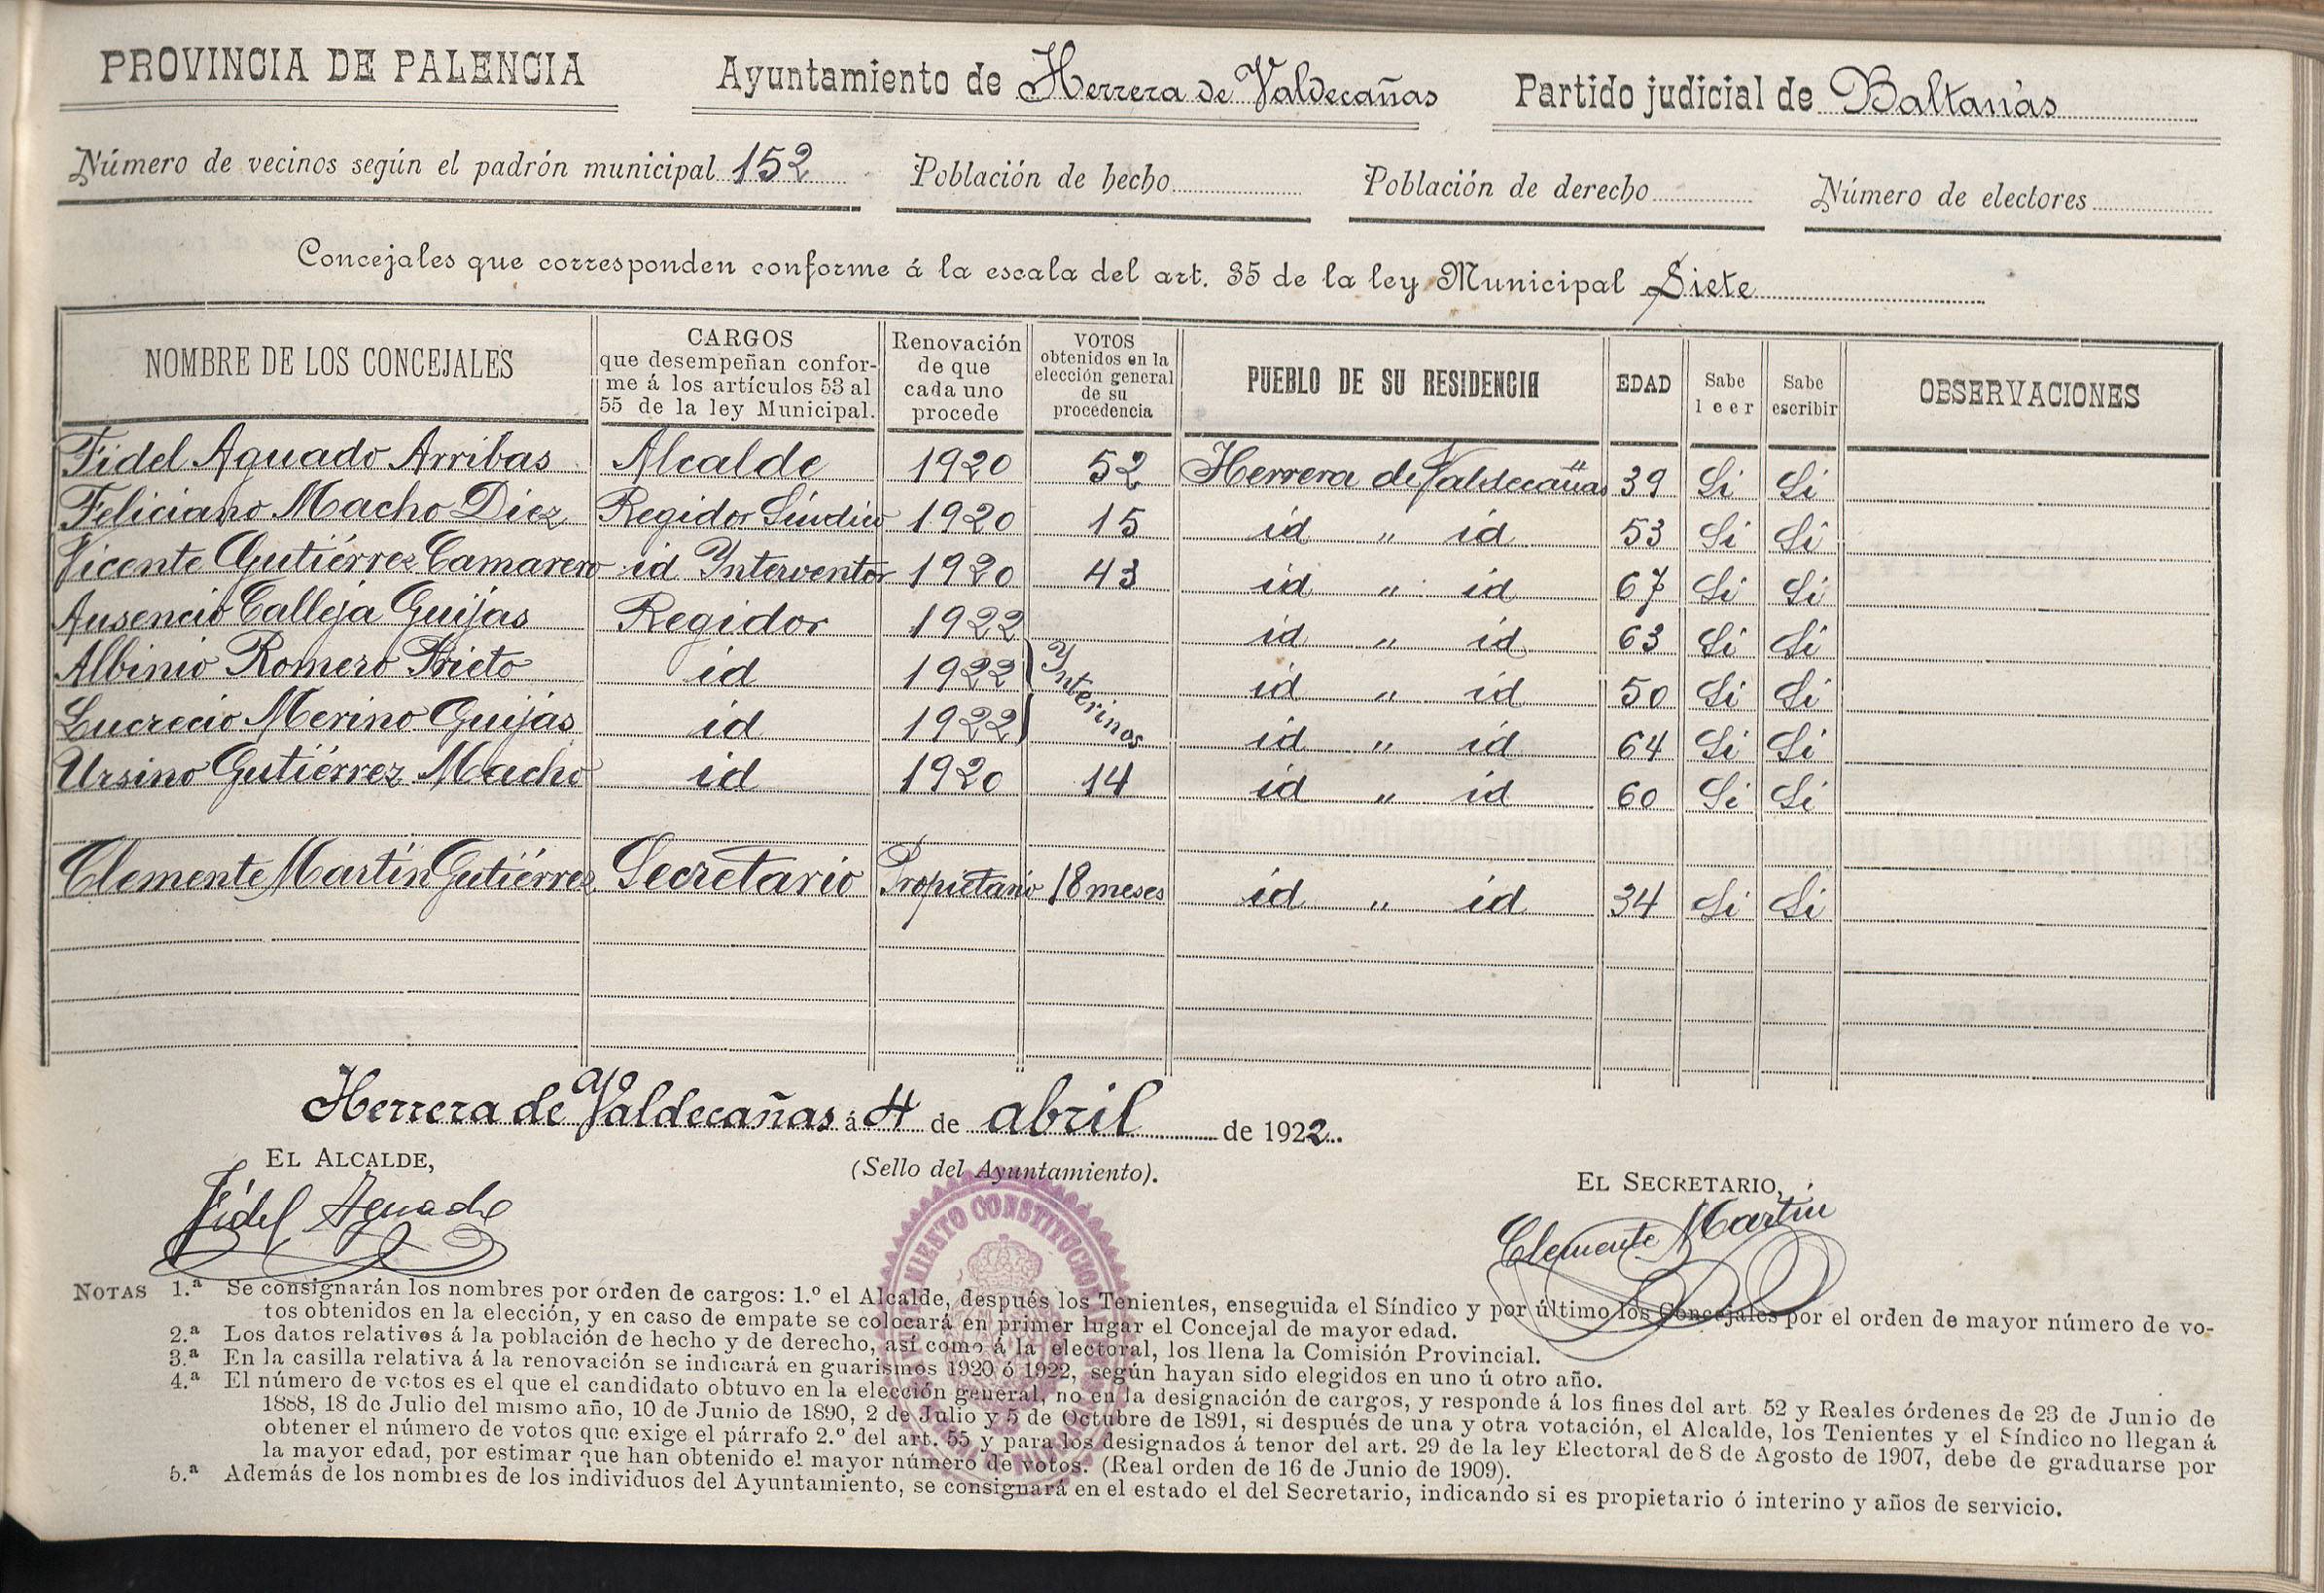 PROVINCIA DE PALENCIA Ayuntamiento de Herrera de Valdecañas Partido judicial de Baltanás
Número de vecinos según el padrón municipal 152 Población de hecho Población de derecho Número de electores
Concejales que corresponden conforme á la escala del art. 35 de la ley Municipal Siete
NOMBRE DE LOS CONCEJALES CARGOS que desempeñan confor-me á los artículos 53 al 55 de la ley Municipal. Renovación de que cada uno procede VOTOS obtenidos en la elección general de su procedencia PUEBLO DE SU RESIDENCIA EDAD Sabe leer Sabe escribir OBSERVACIONES
Fidel Aguado Arribas Alcalde 1920 52 Herrera de Valdecañas 39 Si Si
Feliciano Macho Diez Regidor Síndico 1920 15 id " id 53 Si Si
Vicente Gutiérrez Camarero id Interventor 1920 43 id " id 67 Si Si
Ausencio Calleja Guijas Regidor 1922 id " id 63 Si Si
Albinio Romero Prieto id 1922 Ynterinos id " id 50 Si Si
Lucrecio Merino Guijas id 1922 id " id 64 Si Si
Ursino Gutiérrez Macho id 1920 14 id " id 60 Si Si
Clemente Martín Gutiérrez Secretario Propietario 18 meses id " id 34 Si Si
Herrera de Valdecañas á 4 de abril de 1922.
EL ALCALDE, (Sello del Ayuntamiento). EL SECRETARIO,
Fidel Aguado Clemente Martín
AYUNTAMIENTO CONSTITUCIONAL
NOTAS 1.ª Se consignarán los nombres por orden de cargos: 1.º el Alcalde, después los Tenientes, enseguida el Síndico y por último los Concejales por el orden de mayor número de vo-
tos obtenidos en la elección, y en caso de empate se colocará en primer lugar el Concejal de mayor edad.
2.ª Los datos relativos á la población de hecho y de derecho, así como á la electoral, los llena la Comisión Provincial.
3.ª En la casilla relativa á la renovación se indicará en guarismos 1920 ó 1922, según hayan sido elegidos en uno ú otro año.
4.ª El número de votos es el que el candidato obtuvo en la elección general, no en la designación de cargos, y responde á los fines del art. 52 y Reales órdenes de 23 de Junio de
1888, 18 de Julio del mismo año, 10 de Junio de 1890, 2 de Julio y 5 de Octubre de 1891, si después de una y otra votación, el Alcalde, los Tenientes y el Síndico no llegan á
obtener el número de votos que exige el párrafo 2.º del art. 55 y para los designados á tenor del art. 29 de la ley Electoral de 8 de Agosto de 1907, debe de graduarse por
la mayor edad, por estimar que han obtenido el mayor número de votos. (Real orden de 16 de Junio de 1909).
5.ª Además de los nombres de los individuos del Ayuntamiento, se consignará en el estado el del Secretario, indicando si es propietario ó interino y años de servicio.